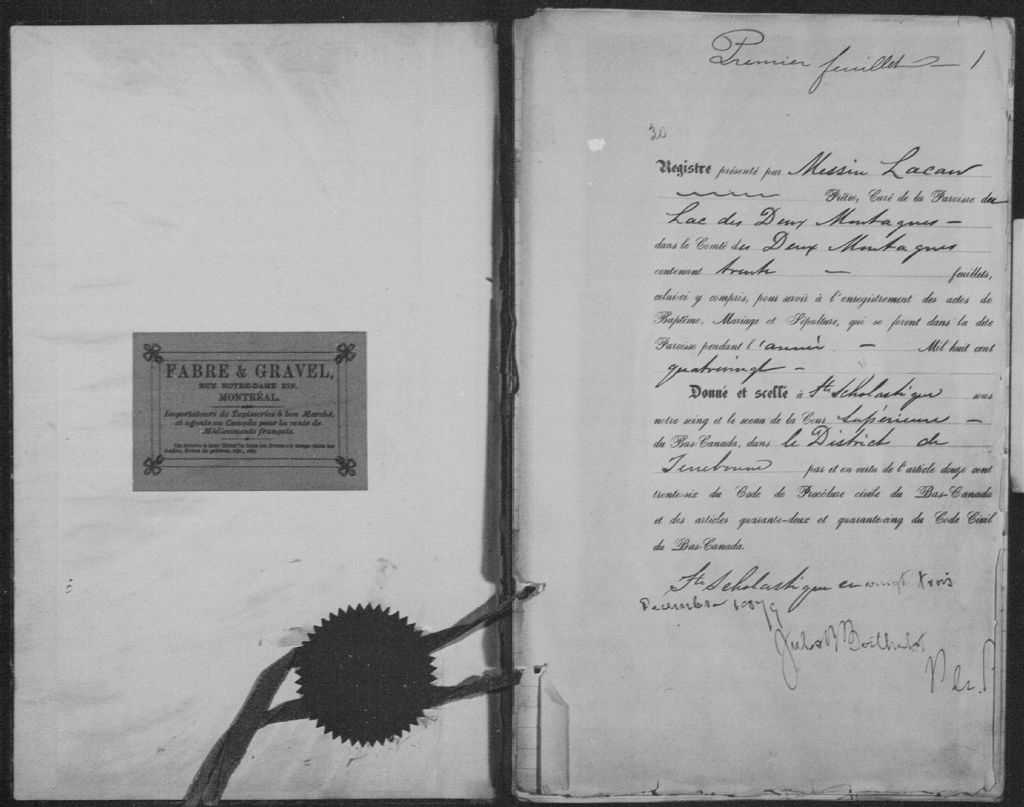 FABRE & GRAVEL,
RUE NOTRE-DAME 219,
MONTRÉAL.
Importateurs de Tapisseries à bon Marché,
et agents au Canada pour la vente de
Médicaments français.
Premier feuillet — 1
30
Registre présenté par Messire Lacan
Prêtre, Curé de la Paroisse du
Lac des Deux Montagnes —
dans le Comté des Deux Montagnes
contenant trente — feuillets,
celui-ci y compris, pour servir à l'enregistrement des actes de
Baptême, Mariage et Sépulture, qui se feront dans la dite
Paroisse pendant l'année — Mil huit cent
quatrevingt —
Donné et scellé à Ste Scholastique sous
notre seing et le sceau de la Cour Supérieure —
du Bas-Canada, dans le District de
Terrebonne par et en vertu de l'article douze cent
trente-six du Code de Procédure civile du Bas-Canada
et des articles quarante-deux et quarante-cinq du Code Civil
du Bas-Canada.
Ste Scholastique ce vingt trois
Decembre 1879